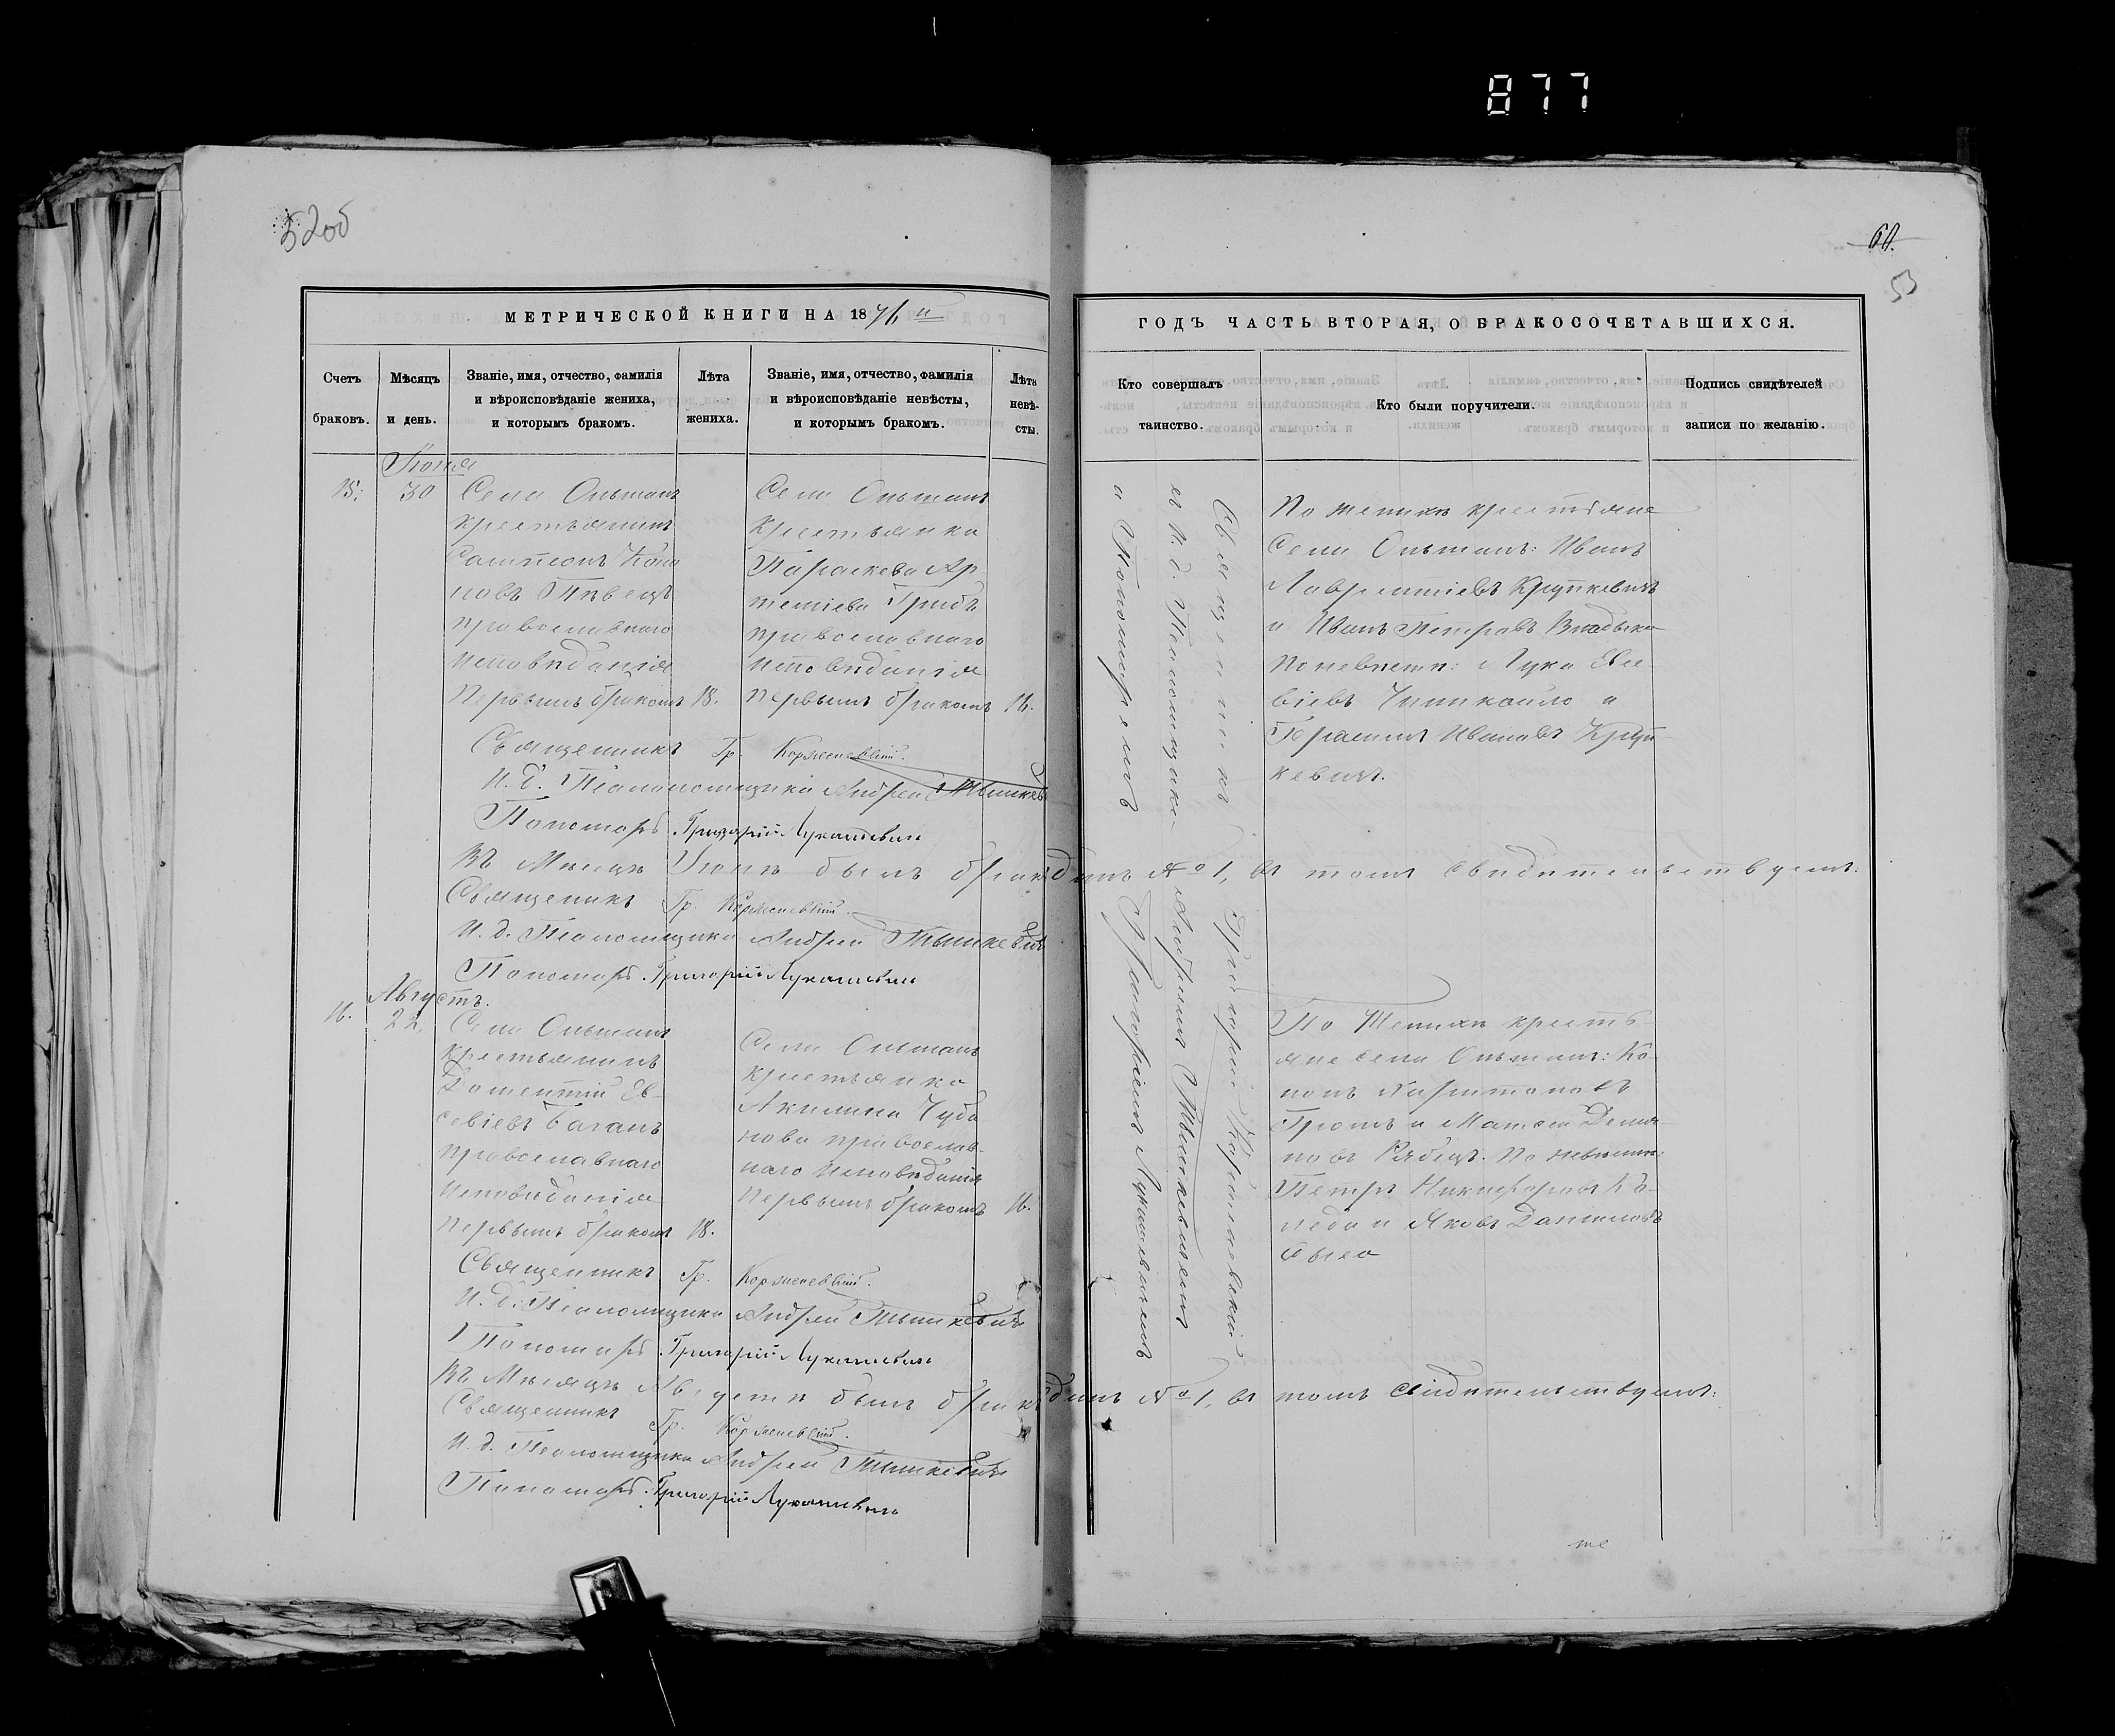 877
52об
60.
53
МЕТРИЧЕСКОЙ КНИГИ НА 1871 й
Счетъ браковъ.
Мѣсяцъ и день.
Званіе, имя, отчество, фамилія
и вѣроисповѣданіе жениха,
и которымъ бракомъ.
Лѣта
жениха.
Званіе, имя, отчество, фамилія
и вѣроисповѣданіе невѣсты,
и которымъ бракомъ.
Лѣта
невѣ-
сты.
15.
30
Села Ольшанъ
крестьянинъ
Сампсонъ Коно
новъ Пѣвецъ
православнаго
исповѣданія
первымъ бракомъ
18.
Села Ольшанъ
крестьянка
Параскева Ар
темiева Гридь
православнаго
исповѣданія
первымъ бракомъ
16.
Священникъ Гр.
И. д. Псаломщика Андрей Тышкевичъ
Пономарь Григорій Лукашевичъ
Въ Мѣсяцѣ Іюнѣ былъ бракъ одинъ № 1, въ томъ свидѣтельствуемъ:
Священникъ Гр.
И. д. Псаломщика Андрей Тышкевичъ
Пономарь Григорій Лукашевичъ
Августъ.
16.
22.
Села Ольшанъ
крестьянинъ
Дометій Ев-
севіевъ Баганъ
православнаго
исповѣданія
первымъ бракомъ
18.
Села Ольшанъ
крестьянка
Акилина
православ-
наго исповѣданія
первымъ бракомъ
16.
Священникъ Гр.
И. д. Псаломщика Андрей Тышкевичъ
Пономарь Григорій Лукашевичъ
Въ Мѣсяцѣ Августѣ былъ бракъ одинъ № 1, въ томъ свидѣтельствуемъ:
Священникъ Гр.
И. д. Псаломщика Андрей Тышкевичъ
Пономарь Григорій Лукашевичъ
ГОДЪ ЧАСТЬ ВТОРАЯ, О БРАКОСОЧЕТАВШИХСЯ.
Кто совершалъ
таинство.
Кто были поручители.
Подпись свидѣтелей
записи по желанію.
Священникъ Григорій
съ И. д. Псаломщика Андреемъ Тышкевичемъ
и Пономаремъ Григоріемъ Лукашевичемъ
По женихѣ крестьяне
Села Ольшанъ: Иванъ
Лаврентіевъ Крупкевичъ
и Иванъ Петровъ Владыко
По невѣстѣ: Лука Евсе-
віевъ и
Герасимъ Ивановъ Круп-
кевичъ.
По Женихѣ кресть-
яне села Ольшанъ: Ко-
нонъ Харитоновъ
и Матвей Демья-
новъ По невѣстѣ:
Петръ Никифоровъ Ко-
леда и Яковъ Даниловъ